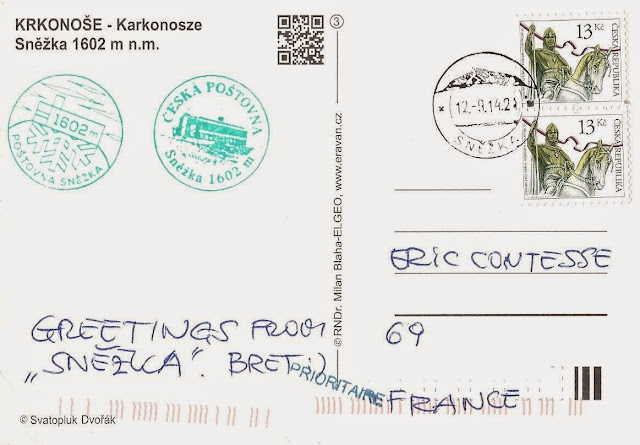 KRKONOŠE - Karkonosze
Sněžka 1602 m n.m.
1602 m
POŠTOVNA SNĚŽKA
ČESKÁ POŠTOVNA
Sněžka 1602 m
GREETINGS FROM
„SNĚŽKA". BRET:)
PRIORITAIRE
© Svatopluk Dvořák
3
© RNDr. Milan Blaha-ELGEO, www.eravan.cz
12.-9.14.2
SNĚŽKA
13 Kč
ČESKÁ REPUBLIKA
13 Kč
ČESKÁ REPUBLIKA
ERIC CONTESSE
69
FRANCE